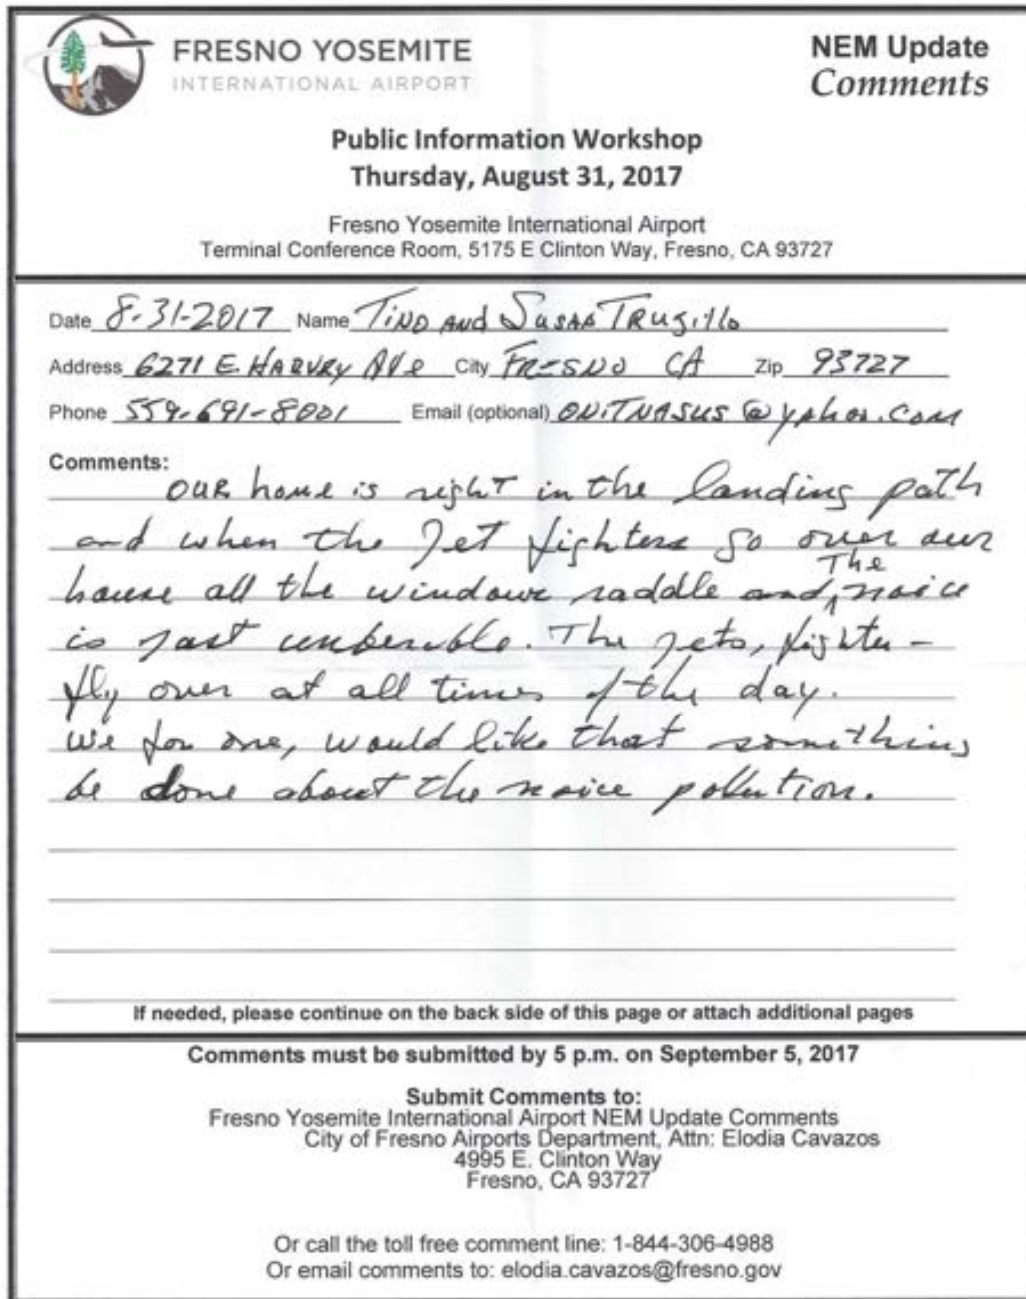 FRESNO YOSEMITE
INTERNATIONAL AIRPORT
NEM Update
Comments
Public Information Workshop
Thursday, August 31, 2017
Fresno Yosemite International Airport
Terminal Conference Room, 5175 E Clinton Way, Fresno, CA 93727
Date 8-31-2017 Name Tino and Susan Trugillo
Address 6271 E. Harvry Ave City Fresno CA Zip 93727
Phone 559-691-8001 Email (optional) ONITNASUS@yahoo.com
Comments:
OUR home is right in the landing path
and when the Jet fighters go over our
house all the windows raddle and The noice
is just unberible. The jets, fighter-
fly over at all times of the day.
We for one, would like that something
be done about the noice pollution.
If needed, please continue on the back side of this page or attach additional pages
Comments must be submitted by 5 p.m. on September 5, 2017
Submit Comments to:
Fresno Yosemite International Airport NEM Update Comments
City of Fresno Airports Department, Attn: Elodia Cavazos
4995 E. Clinton Way
Fresno, CA 93727
Or call the toll free comment line: 1-844-306-4988
Or email comments to: elodia.cavazos@fresno.gov